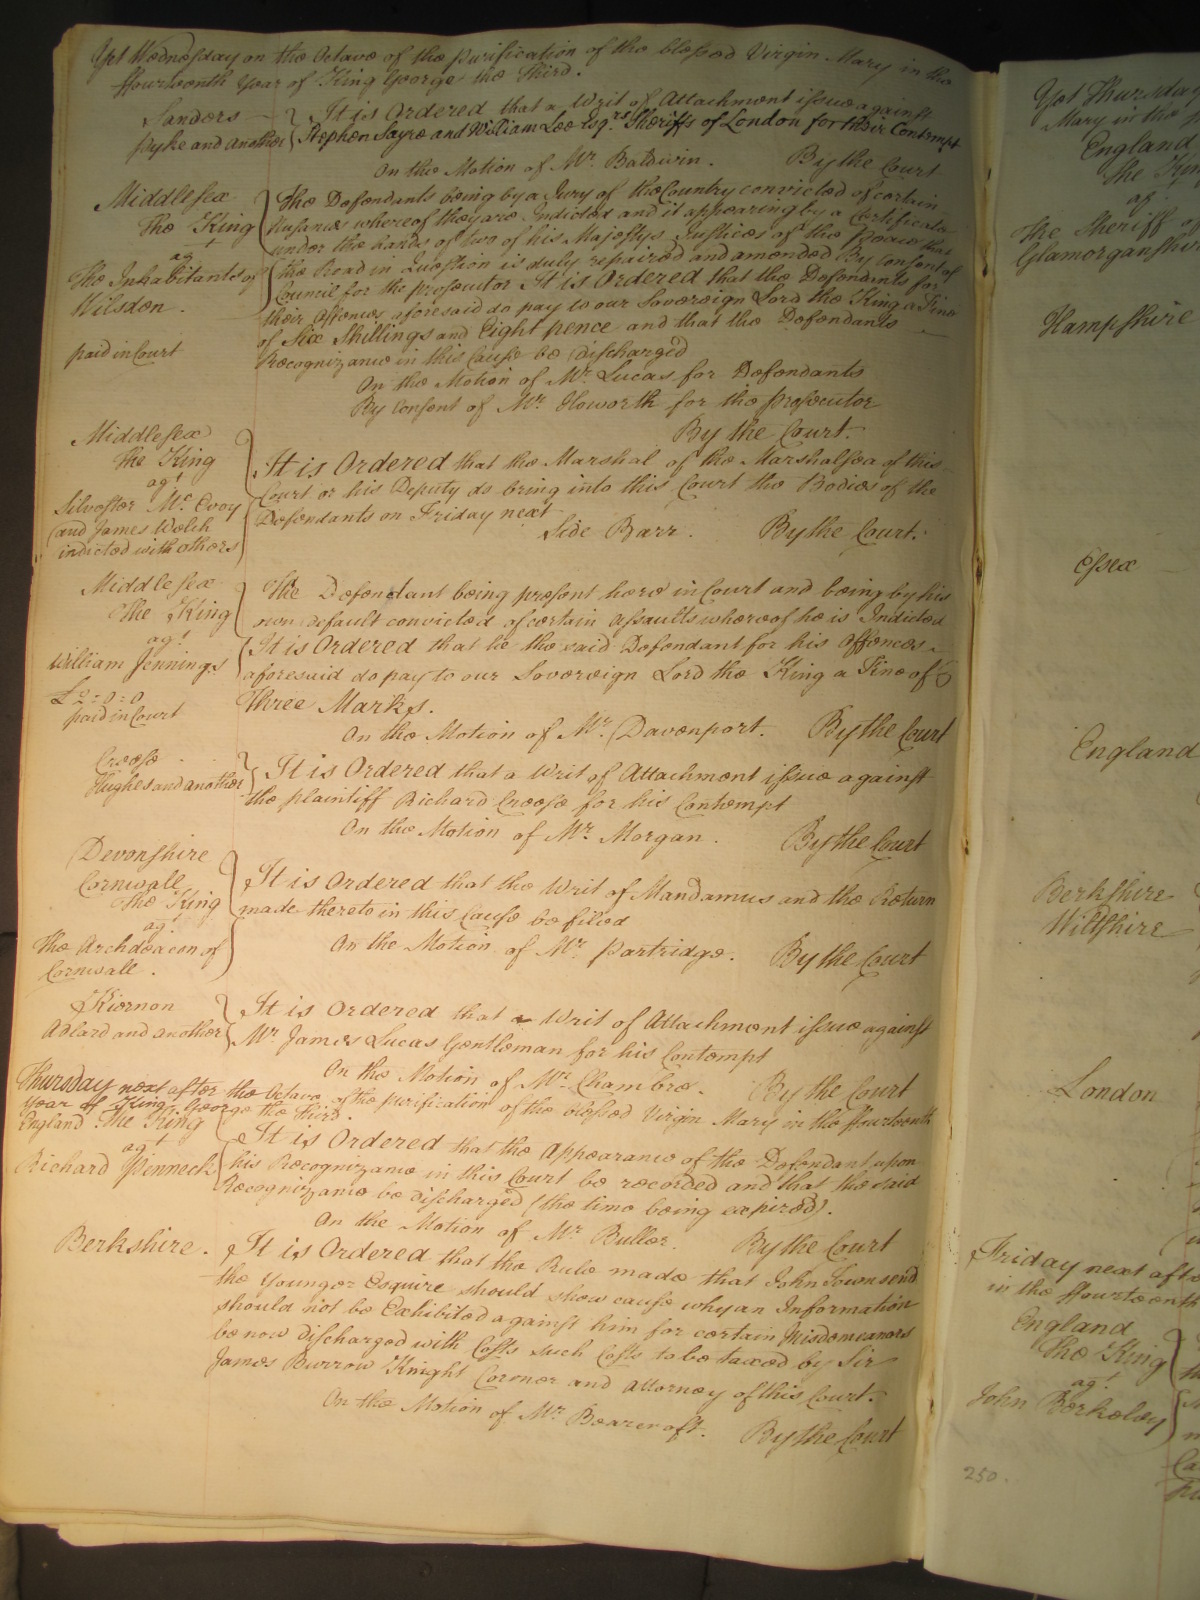 Yet Wednesday on the Octave of the Purification of the blessed Virgin Mary in the
ffourteenth Year of King George the Third.
Sanders
Pyke and another
It is Ordered that a Writ of Attachment issue against
Stephen Sayre and William Lee Esqrs. Sheriffs of London for their Contempt
On the Motion of Mr. Baldwin. By the Court
Middlesex
The King
agt
The Inhabitants of
Wilsdon.
paid in Court
The Defendants being by a Jury of the Country convicted of certain
Nusances whereof they are Indicted and it appearing by a Certificate
under the hands of two of his Majestys Justices of the Peace that
the Road in Question is duly repaired and amended By Consent of
Council for the prosecutor It is Ordered that the Defendants for
their Offences aforesaid do pay to our Sovereign Lord the King a Fine
of Six Shillings and Eight pence and that the Defendants
Recognizance in this Cause be discharged
On the Motion of Mr. Lucas for Defendants
By Consent of Mr. Howorth for the prosecutor
By the Court.
Middlesex
The King
agt
Silvester Mc. Evoy
and James Welch
indicted with others
It is Ordered that the Marshal of the Marshalsea of this
Court or his Deputy do bring into this Court the Bodies of the
Defendants on Friday next
Side Barr. By the Court.
Middlesex
The King
agt
William Jennings
£2:0:0
paid in Court
The Defendant being present here in Court and being by his
own default convicted of certain Assaults whereof he is Indicted
It is Ordered that he the said Defendant for his Offences
aforesaid do pay to our Sovereign Lord the King a Fine of
Three Marks.
On the Motion of Mr. Davenport. By the Court
Creese
Hughes and another
It is Ordered that a Writ of Attachment issue against
the plaintiff Richard Creese for his Contempt
On the Motion of Mr. Morgan. By the Court
Devonshire
Cornwall
The King
agt
The Archdeacon of
Cornwall.
It is Ordered that the Writ of Mandamus and the Return
made thereto in this Cause be filed
On the Motion of Mr. Partridge. By the Court
Kiernon
Adlard and another
It is Ordered that a Writ of Attachment issue against
Mr. James Lucas Gentleman for his Contempt
On the Motion of Mr. Chambre. By the Court
Thursday next after the Octave of the purification of the blessed Virgin Mary in the ffourteenth
Year of King George the third.
England The King
agt
Richard Pinneck
It is Ordered that the Appearance of the Defendant upon
his Recognizance in this Court be recorded and that the said
Recognizance be discharged (the time being expired).
On the Motion of Mr. Buller. By the Court
Berkshire.
It is Ordered that the Rule made that John Townsend
the Younger Esquire should shew cause why an Information
should not be Exhibited against him for certain Misdemeanors
be now discharged with Costs such Costs to be taxed by Sir
James Burrow Knight Coroner and Attorney of this Court.
On the Motion of Mr. Bearcroft. By the Court
Yet Thursday
Mary in the
England
The King
agt
The Sheriff of
Glamorganshire
Hampshire
Essex
England
Berkshire
Wiltshire
London
Friday next after
in the ffourteenth
England
The King
agt
John Berkeley
250.